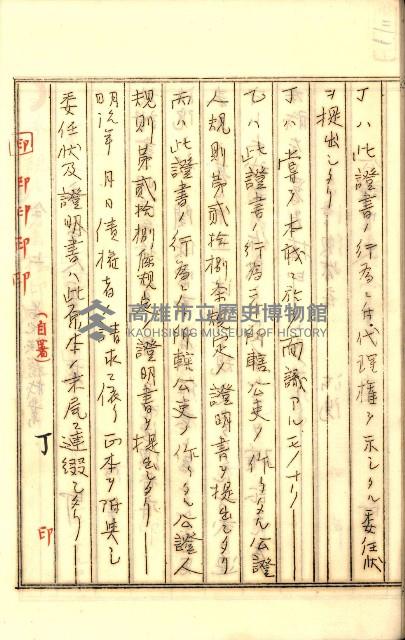 丁ハ此證書ノ行為ニ付代理權ヲ示シタル委任狀
ヲ提出シタリ
丁ハ當本職ニ於テ面識アルモノナリ
乙ハ此證書ノ行為ニ付管轄公吏ノ作リタル公證
人規則第貳拾捌条規定ノ證明書ヲ提出シタリ
丙ハ此證書ノ行為ニ付管轄公吏ノ作リタル公證人
規則第貳拾捌條規定ノ證明書ヲ提出シタリ
明治 年 月 日債權者ノ請求ニ依リ正本ヲ附與シ
委任狀及證明書ハ此原本ノ末尾ニ連綴シタリ
印 印 印 印 印 (自署) 丁 印
高雄市立歷史博物館
KAOHSIUNG MUSEUM OF HISTORY